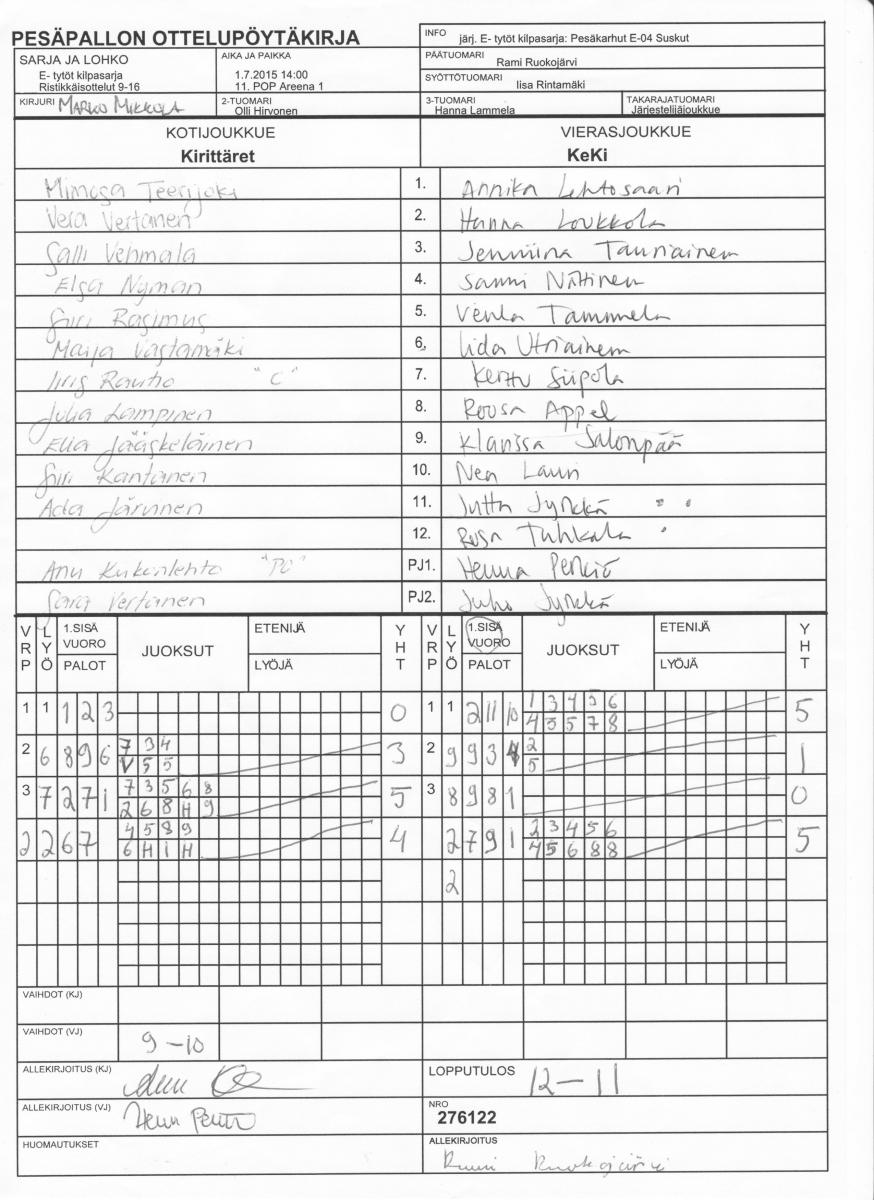 PESÄPALLON OTTELUPÖYTÄKIRJA
INFO järj. E- tytöt kilpasarja: Pesäkarhut E-04 Suskut
SARJA JA LOHKO
E- tytöt kilpasarja
Ristikkäisottelut 9-16
AIKA JA PAIKKA
1.7.2015 14:00
11. POP Areena 1
PÄÄTUOMARI Rami Ruokojärvi
SYÖTTÖTUOMARI Iisa Rintamäki
KIRJURI Marko Mikkola
2-TUOMARI Olli Hirvonen
3-TUOMARI Hanna Lammela
TAKARAJATUOMARI Järjestelijäjoukkue
KOTIJOUKKUE VIERASJOUKKUE
Kirittäret KeKi
Mimosa Teerijoki 1. Annika Lehtosaari
Vera Vertanen 2. Hanna Loukkola
Salli Vehmala 3. Jenniina Tauriainen
Elsa Nyman 4. Sanni Nättinen
Siiri Rasimus 5. Venla Tammela
Maija Vastamäki 6. Iida Utriainen
Iiris Rautio "C" 7. Kerttu Siipola
Julia Lampinen 8. Roosa Appel
Ella Jääskeläinen 9. Klarissa Salonpää
Siiri Kantanen 10. Nea Lauri
Ada Järvinen 11. Jutta Jyrkkä " "
12. Rosa Tuhkala "
Anu Kukonlehto "PJ" PJ1. Henna Perkiö
Sara Vertanen PJ2. Juho Jyrkkä
VRP LYÖ 1.SISÄ VUORO PALOT JUOKSUT ETENIJÄ LYÖJÄ YHT VRP LYÖ 1.SISÄ VUORO PALOT JUOKSUT ETENIJÄ LYÖJÄ YHT
1 1 1 2 3 0 1 1 2 11 10 1 3 4 5 6 5
4 3 5 7 8
2 6 8 9 6 7 3 4 3 2 9 9 3 4 2 1
V 5 5 5
3 7 2 7 1 7 3 5 6 8 5 3 8 9 8 1 0
2 6 8 H 9
2 2 6 7 4 5 8 9 4 2 7 9 1 2 3 4 5 6 5
6 H 1 H 4 5 6 8 8
2
VAIHDOT (KJ)
VAIHDOT (VJ) 9-10
ALLEKIRJOITUS (KJ)
LOPPUTULOS 12-11
ALLEKIRJOITUS (VJ)
NRO 276122
HUOMAUTUKSET
ALLEKIRJOITUS